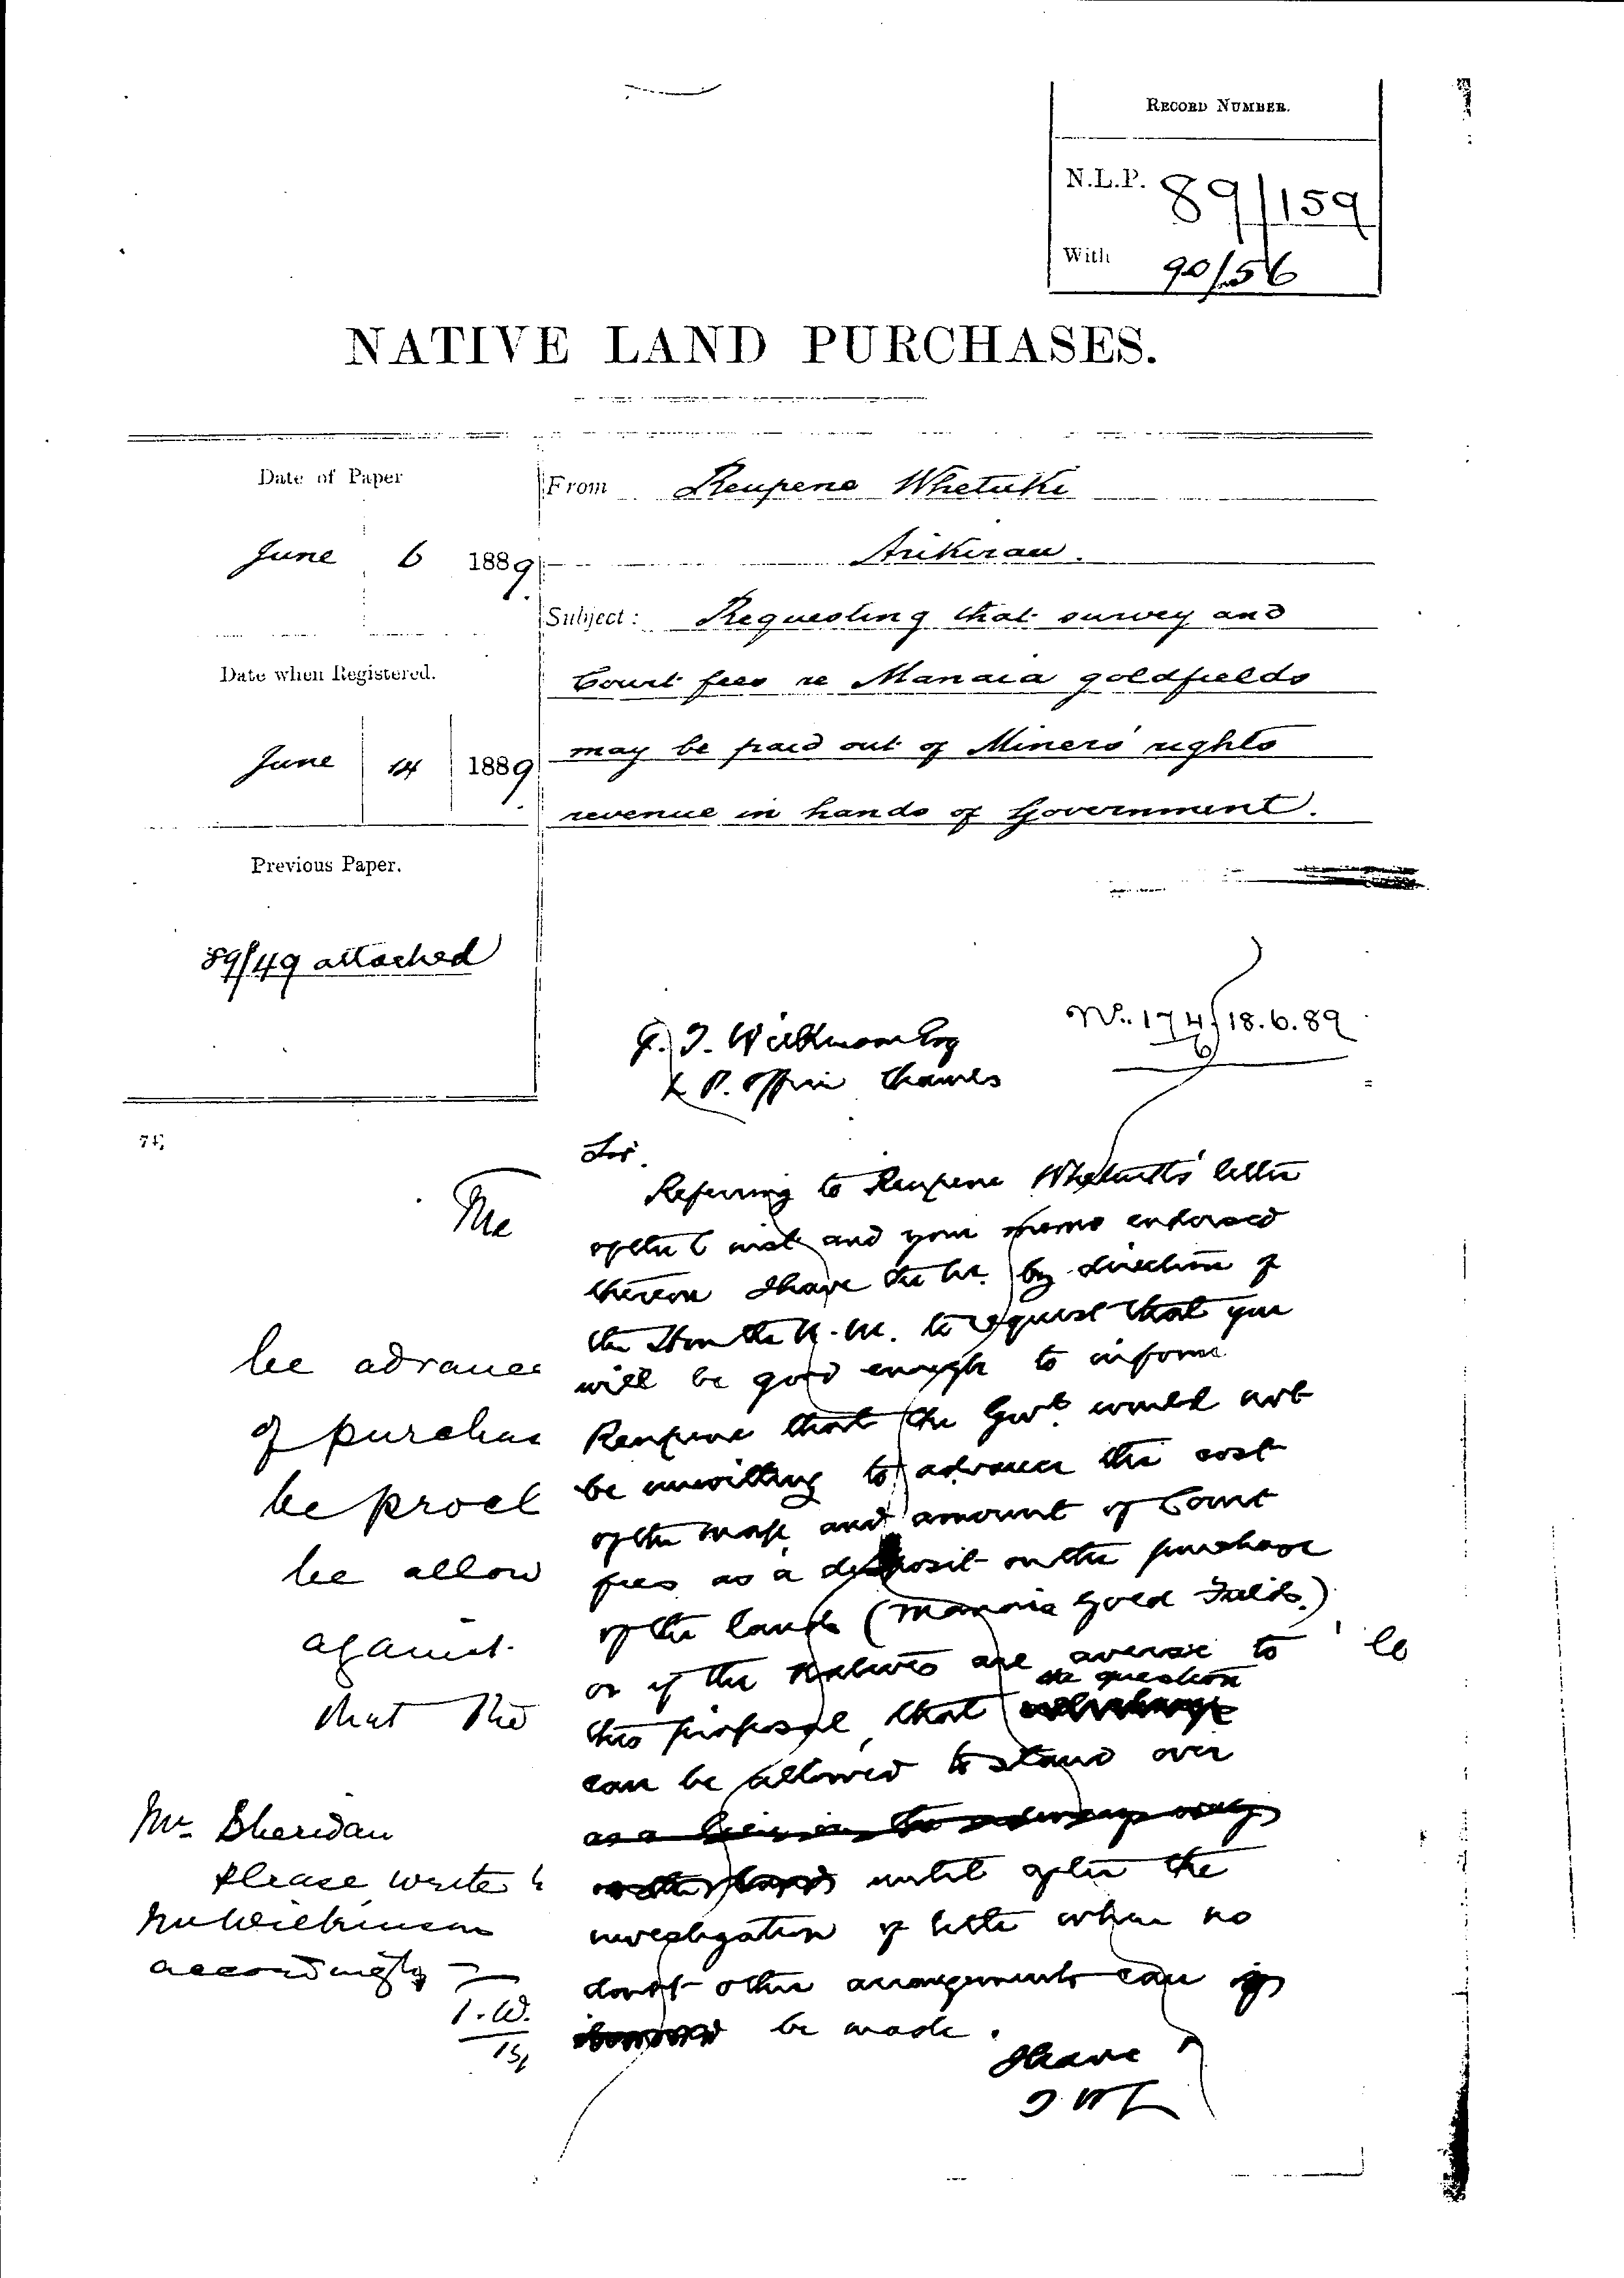 RECORD NUMBER.
N.L.P. 89/159
With 90/56
NATIVE LAND PURCHASES.
Date of Paper
June 6 1889.
Date when Registered.
June 14 1889.
Previous Paper.
89/49 attached
From Reupene Whetuki
Arikirau.
Subject: Requesting that survey and
Court fees re Manaia goldfields
may be paid out of Miners' rights
revenue in hands of Government.
No. 174/6 18.6.89
G. T. Wilkinson Esq
L P. Office Thames
74,
Sir.
Referring to Reupene Whetuki's letter
of the 6 inst and your memo endorsed
thereon I have the hr. by direction of
the Hon the N.M. to request that you
will be good enough to inform
Reupene that the Govt. would not
be unwilling to advance the cost
of the map and amount of Court
fees as a deposit on the purchase
of the land (Manaia Gold Fields.)
or if the Natives are averse to
this proposal, that the question
can be allowed to stand over
until after the
investigation of title when no
doubt other arrangements can
be made.
I have
The
be advance
of purchas
be procl
be allow
against
that the
to
Mr. Sheridan
Please write to
Mr Wilkinson
accordingly
T.W.